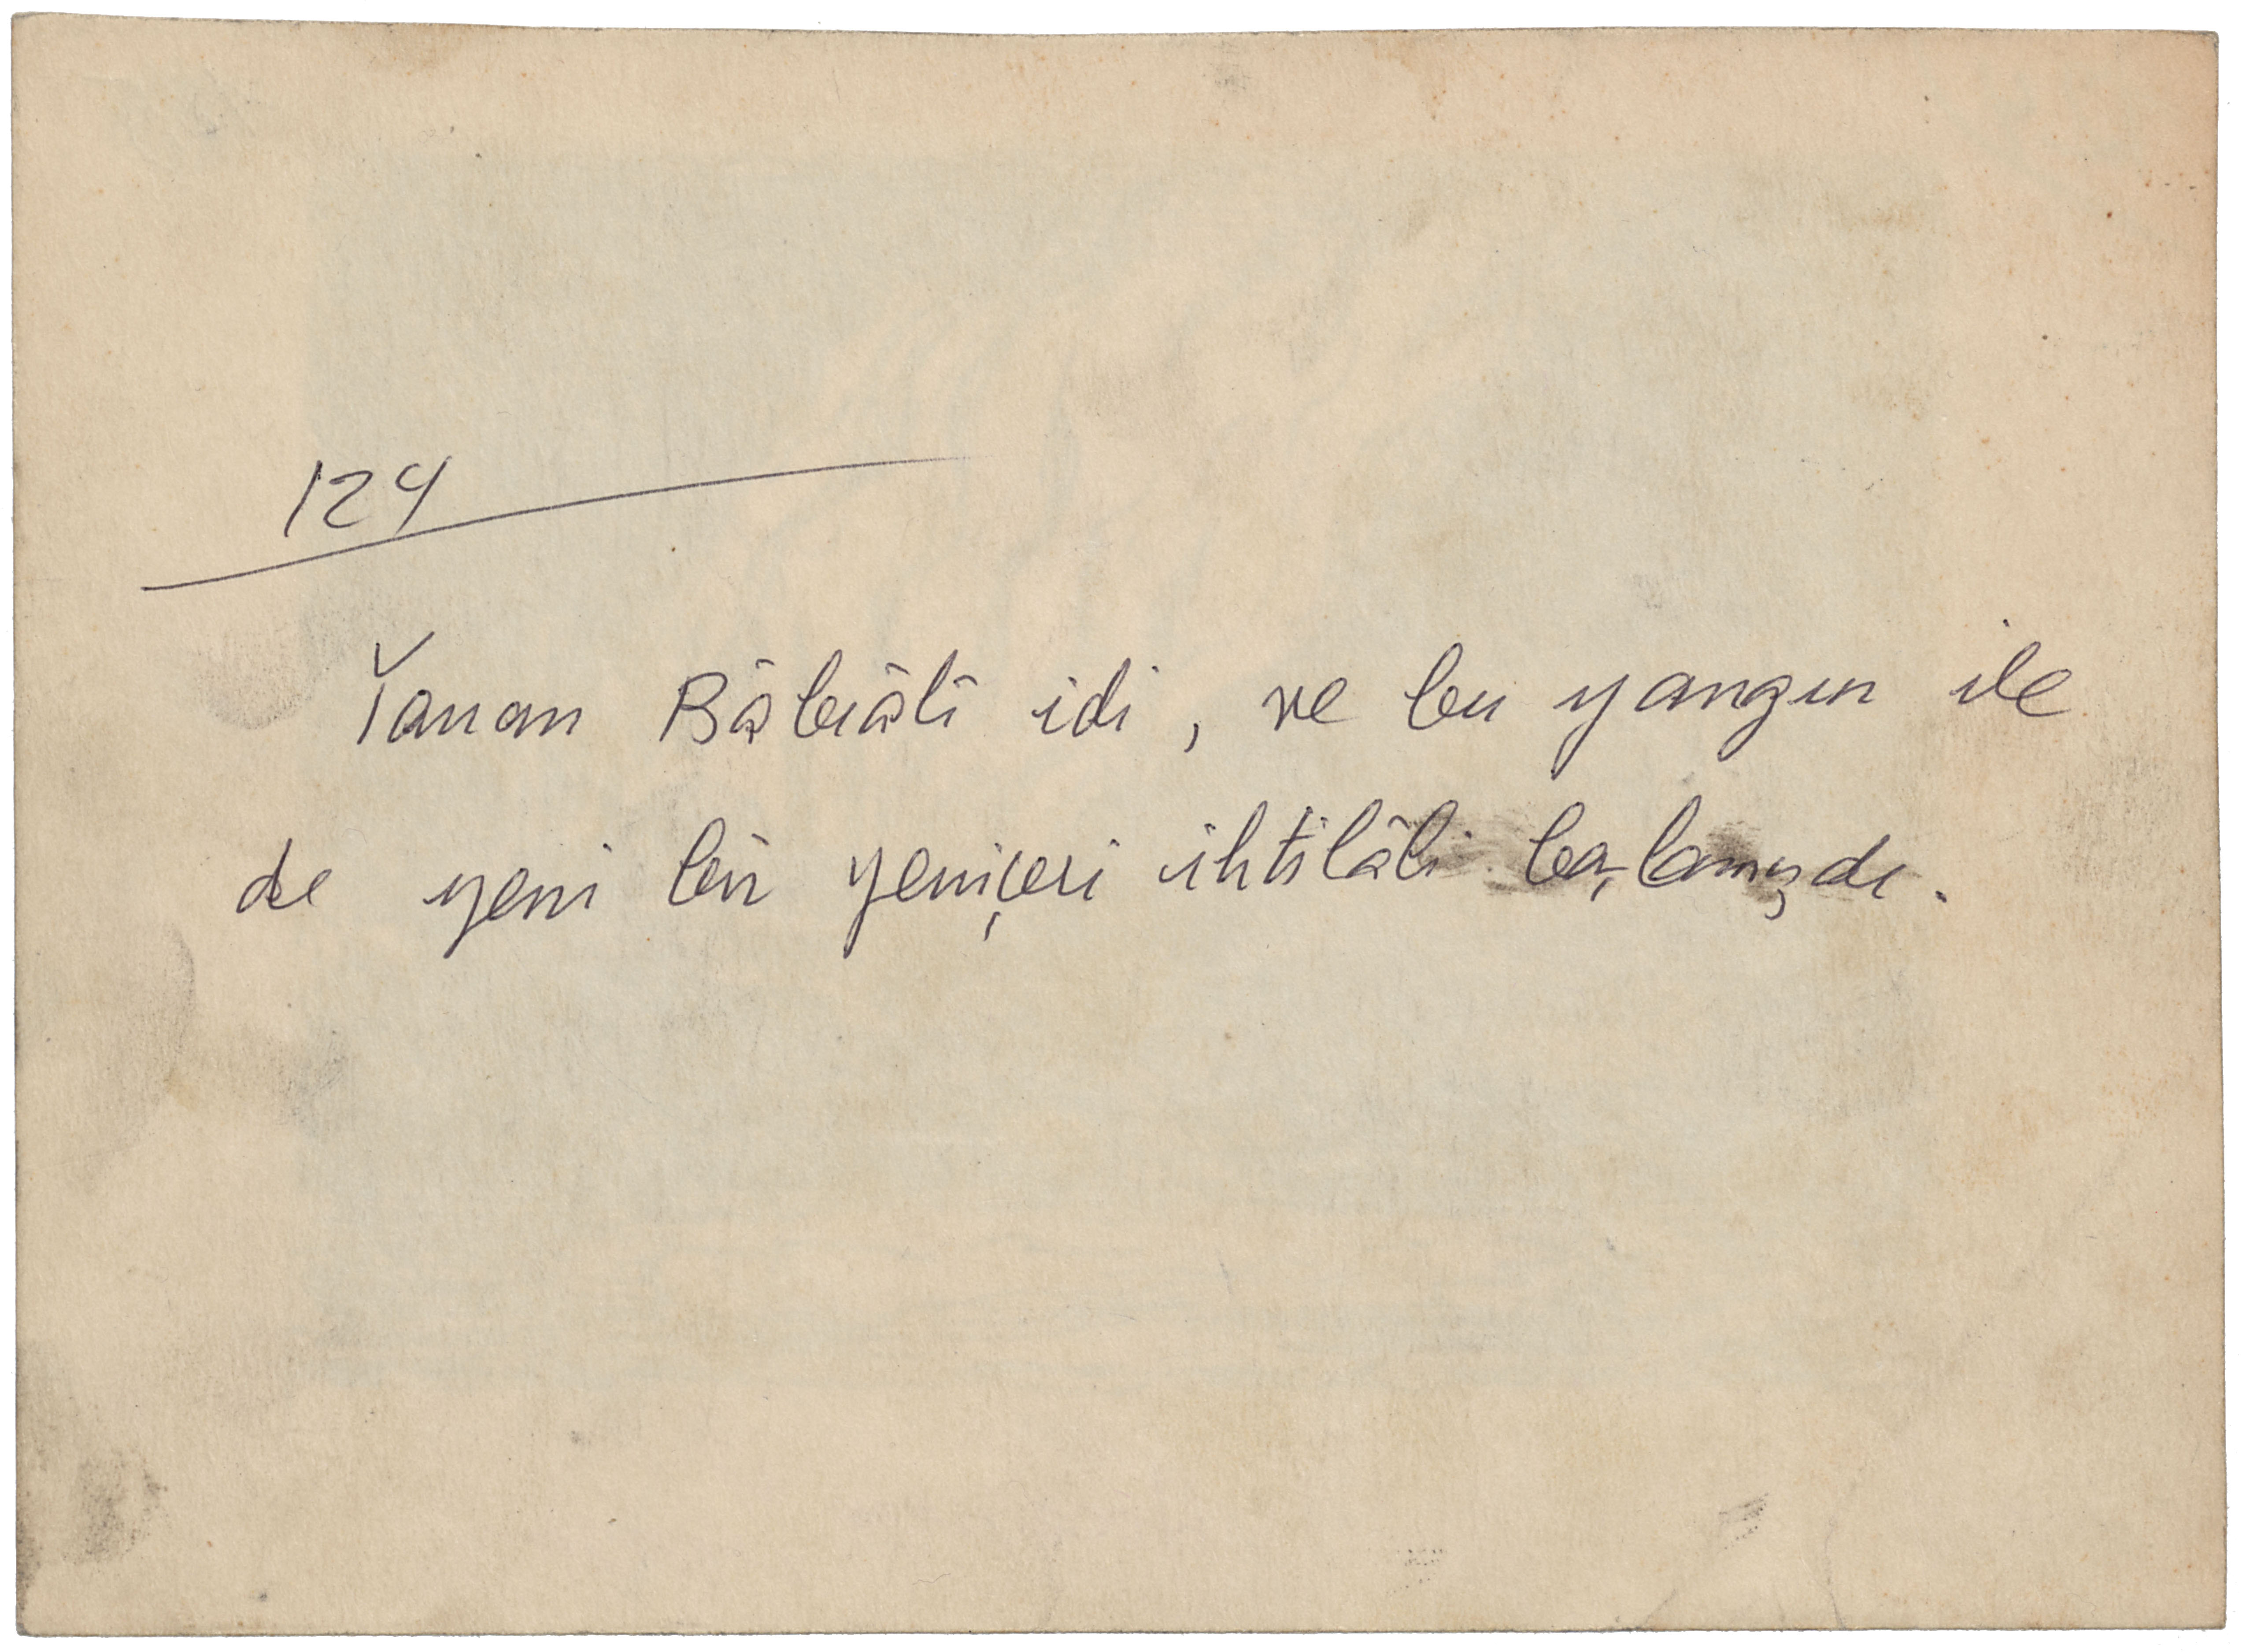 124
Yanan Bâbıâlî idi, ve bu yangın ile
de yeni bir yeniçeri ihtilâli başlamışdı.